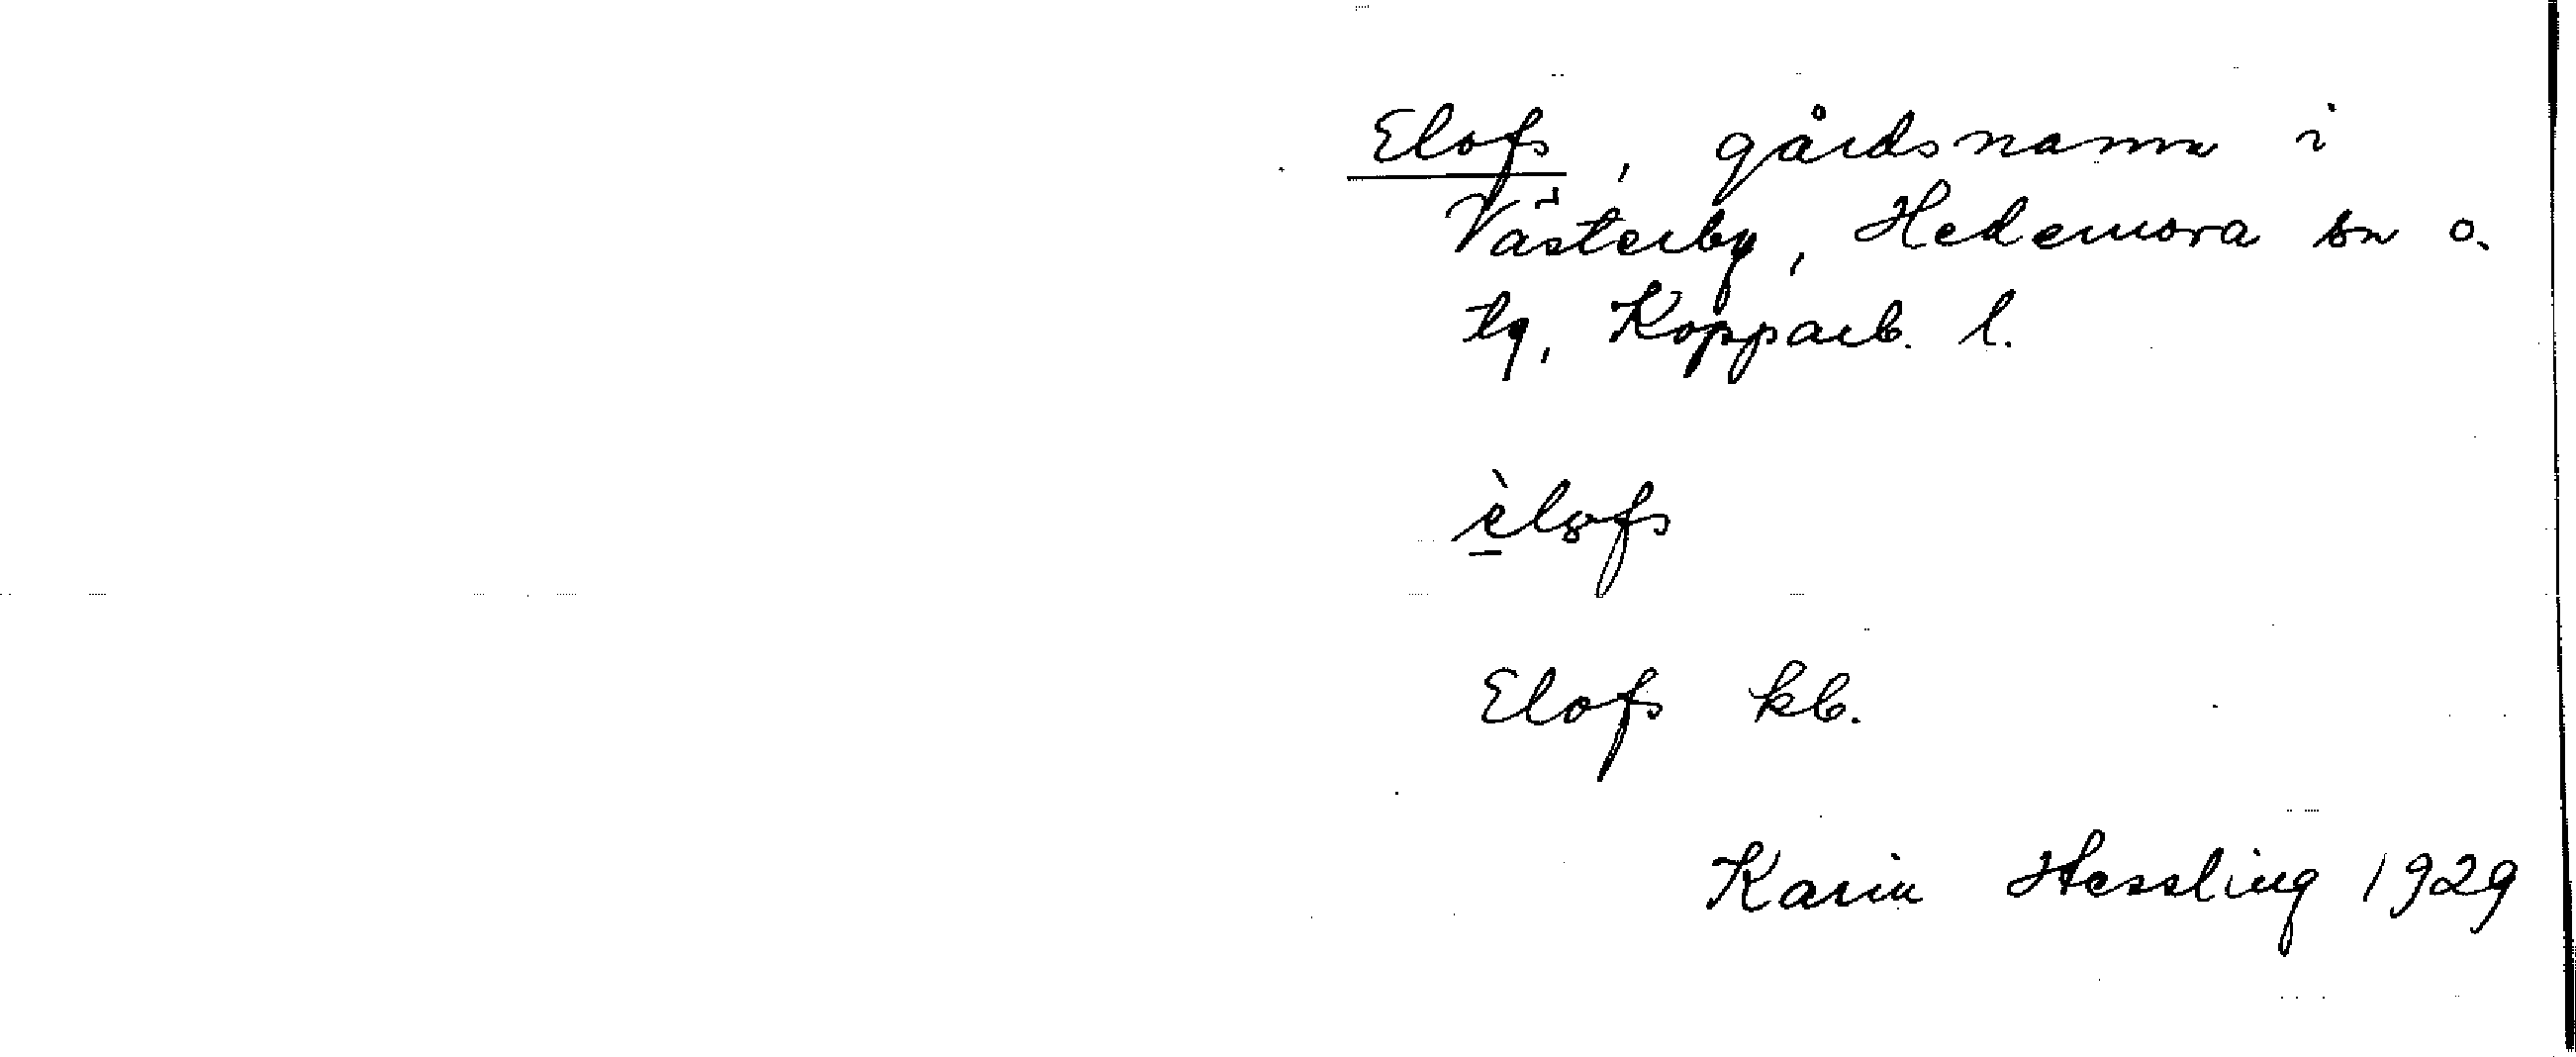 Elofs, gårdsnamn i
Västerby, Hedemora sn o.
tg, Kopparb. l.
è̱lofs
Elofs kb.
Karin Hessling 1929